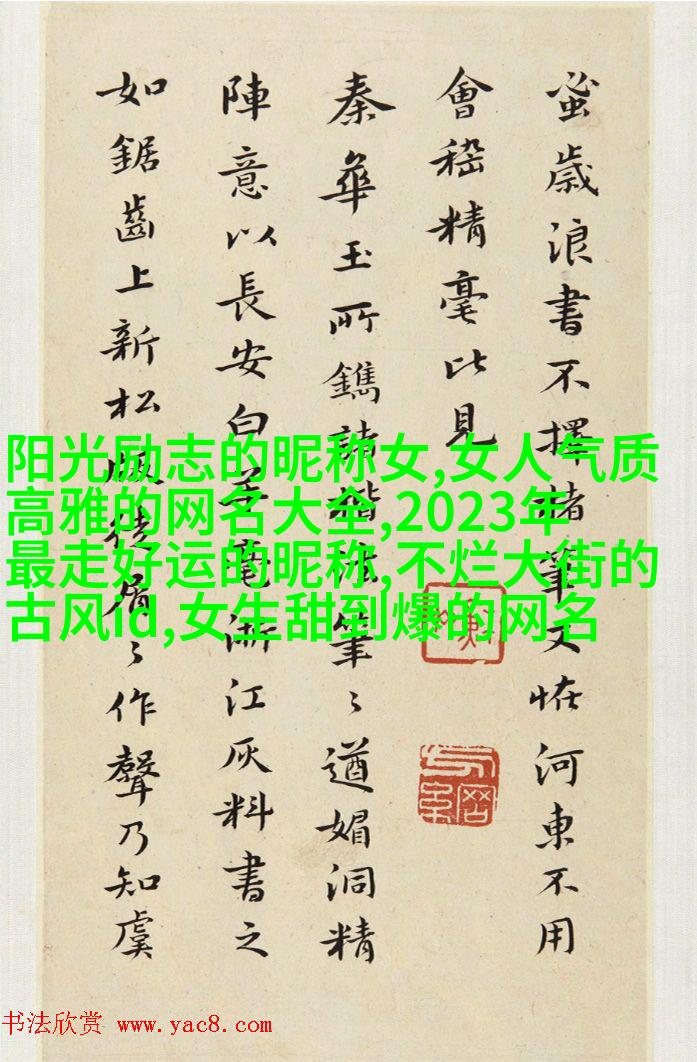 蚤歲浪書不擇楮筆又恠河東不用
會稽精毫比見
秦華玉所鐫諸楷法筆々遒媚洞精
陣意以長安白羊毫浙江灰料書之
如鋸齒上新松版徒屑々作聲乃知虞
阳光励志的昵称女,女人气质
高雅的网名大全,2023年
最走好运的昵称,不烂大街的
古风id,女生甜到爆的网名
书法欣赏 www.yac8.com